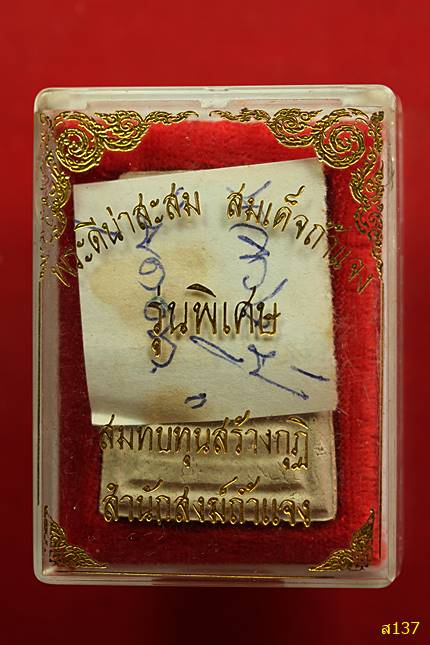 พระดีน่าสะสม สมเด็จถ้ำแจง
รุ่นพิเศษ
สมทบทุนสร้างกุฏิ
สำนักสงฆ์ถ้ำแจง
ส137